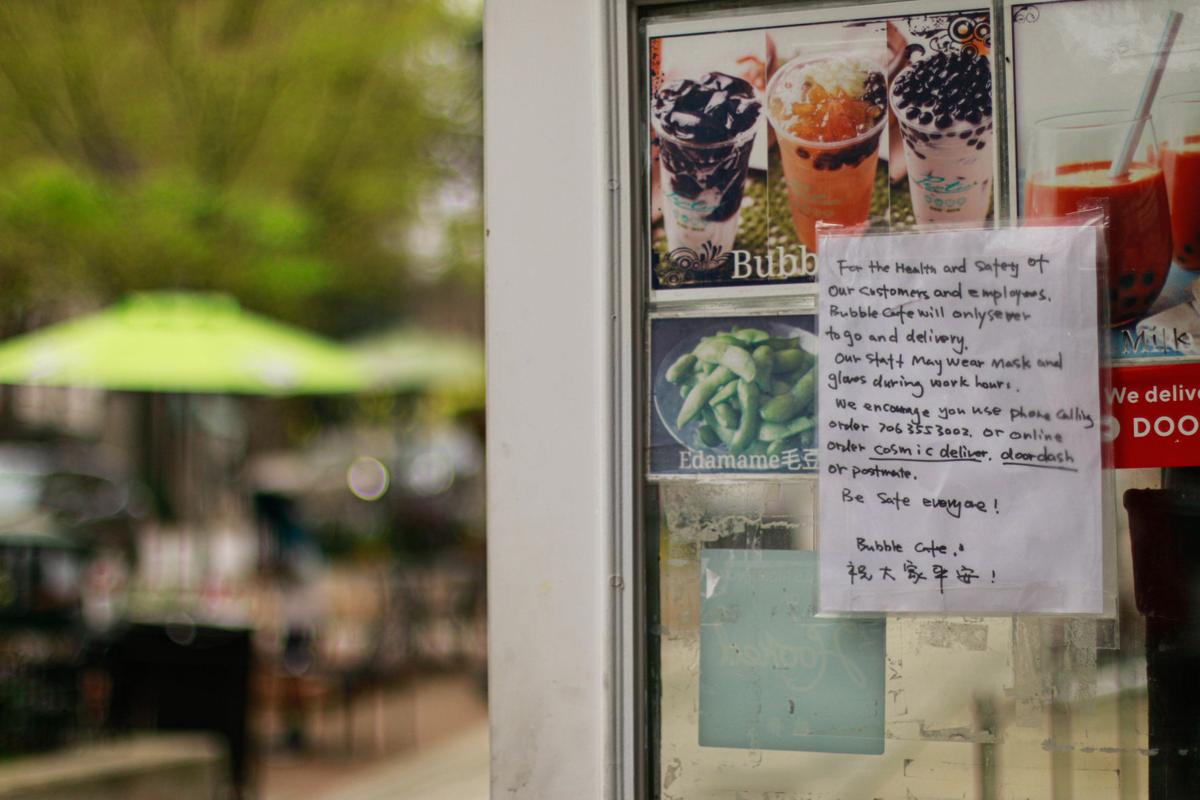 Bubb
Edamame毛豆
For the Health and Safety of
Our Customers and employees.
Bubble Cafe will only server
to go and delivery.
Our staff May wear Mask and
gloves during work hours.
We encourage you use phone calling
order 7063553002. or online
order cosmic deliver. doordash
or postmate.
Be Safe everyone!
Bubble Cafe.
祝大家平安!
Milk
We delive
DOO
Hooked